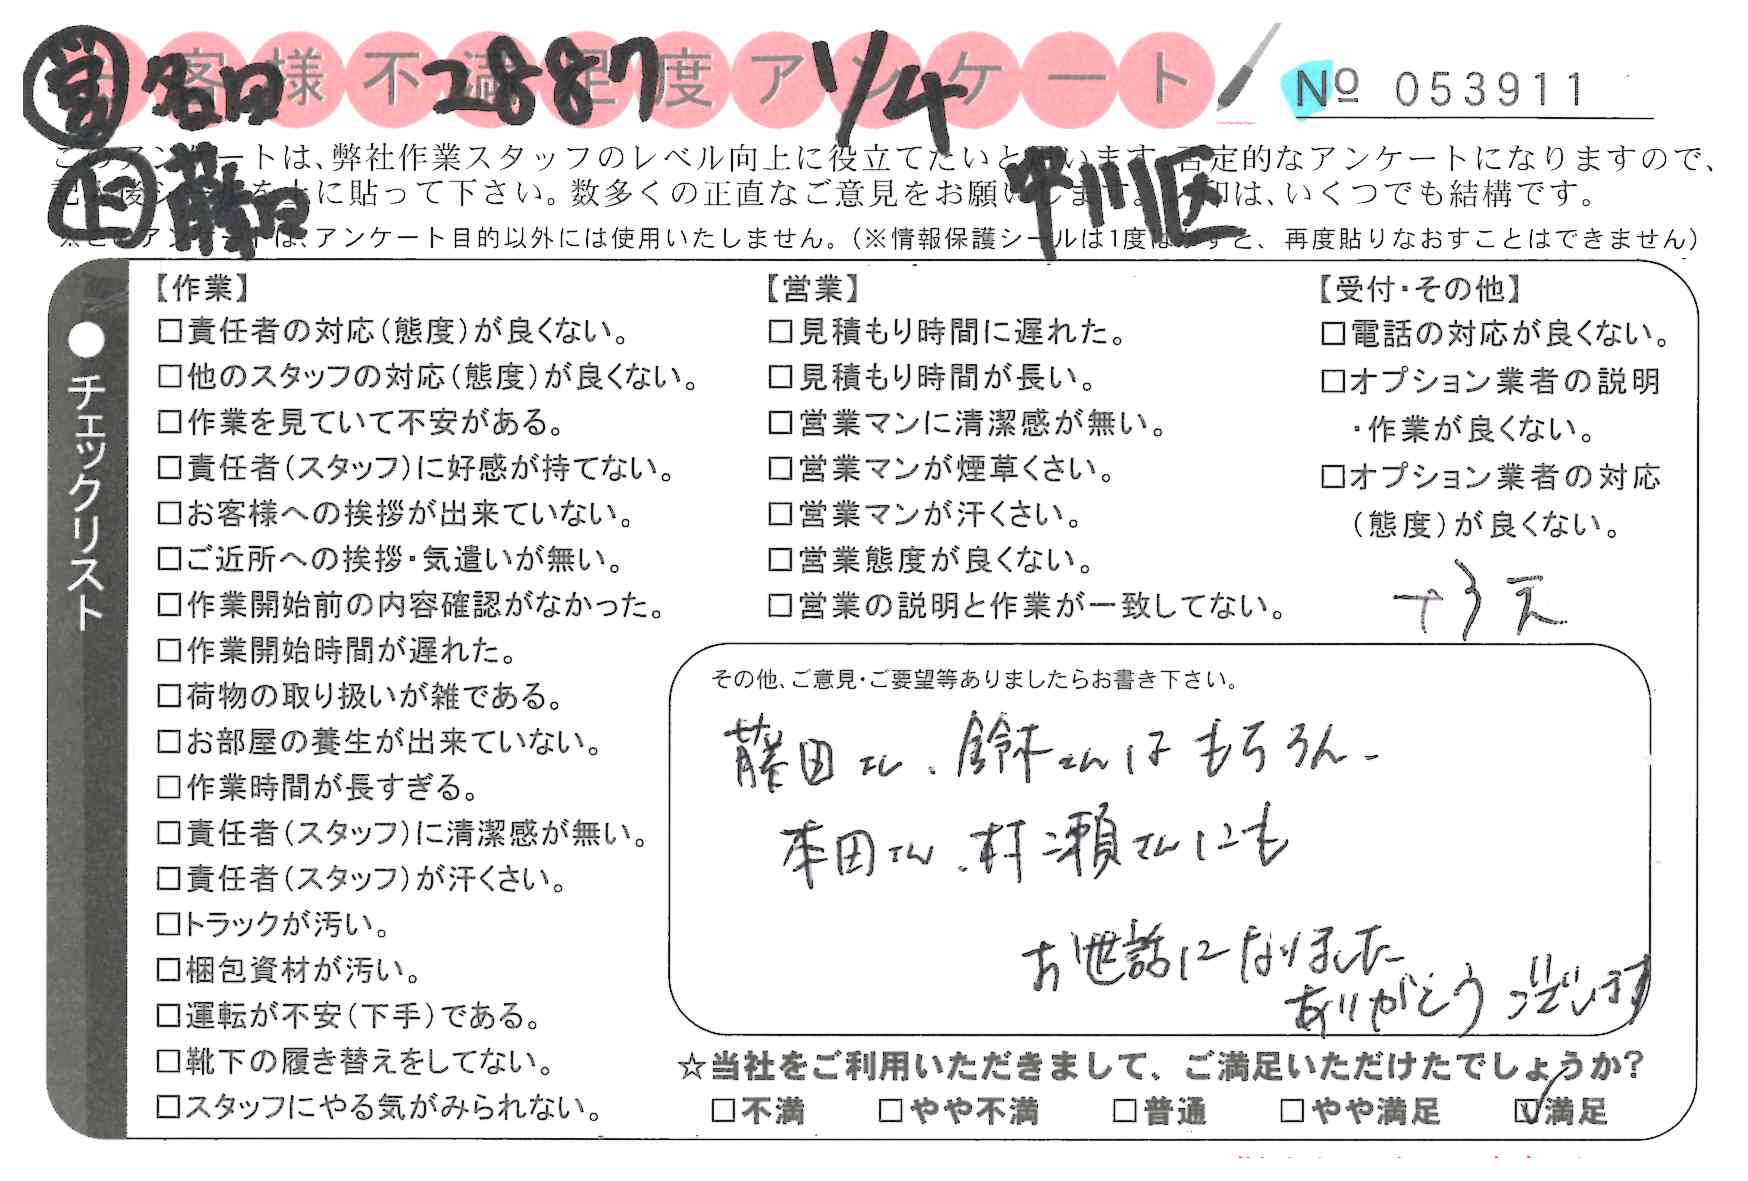 お客様不満足度アンケート
名口 2887 1/4
№ 053911
このアンケートは、弊社作業スタッフのレベル向上に役立てたいと思います。否定的なアンケートになりますので、
記入後シールを上に貼って下さい。数多くの正直なご意見をお願いします。 印は、いくつでも結構です。
中川区
※このアンケートは、アンケート目的以外には使用いたしません。(※情報保護シールは1度はがすと、再度貼りなおすことはできません)
●チェックリスト
【作業】
□責任者の対応(態度)が良くない。
□他のスタッフの対応(態度)が良くない。
□作業を見ていて不安がある。
□責任者(スタッフ)に好感が持てない。
□お客様への挨拶が出来ていない。
□ご近所への挨拶・気遣いが無い。
□作業開始前の内容確認がなかった。
□作業開始時間が遅れた。
□荷物の取り扱いが雑である。
□お部屋の養生が出来ていない。
□作業時間が長すぎる。
□責任者(スタッフ)に清潔感が無い。
□責任者(スタッフ)が汗くさい。
□トラックが汚い。
□梱包資材が汚い。
□運転が不安(下手)である。
□靴下の履き替えをしてない。
□スタッフにやる気がみられない。
【営業】
□見積もり時間に遅れた。
□見積もり時間が長い。
□営業マンに清潔感が無い。
□営業マンが煙草くさい。
□営業マンが汗くさい。
□営業態度が良くない。
□営業の説明と作業が一致してない。
【受付・その他】
□電話の対応が良くない。
□オプション業者の説明
・作業が良くない。
□オプション業者の対応
(態度)が良くない。
その他、ご意見・ご要望等ありましたらお書き下さい。
藤田さん、鈴木さんはもちろん、
本田さん、村瀬さんにも
お世話になりました
ありがとうございます
☆当社をご利用いただきまして、ご満足いただけたでしょうか?
□不満 □やや不満 □普通 □やや満足 ☑満足